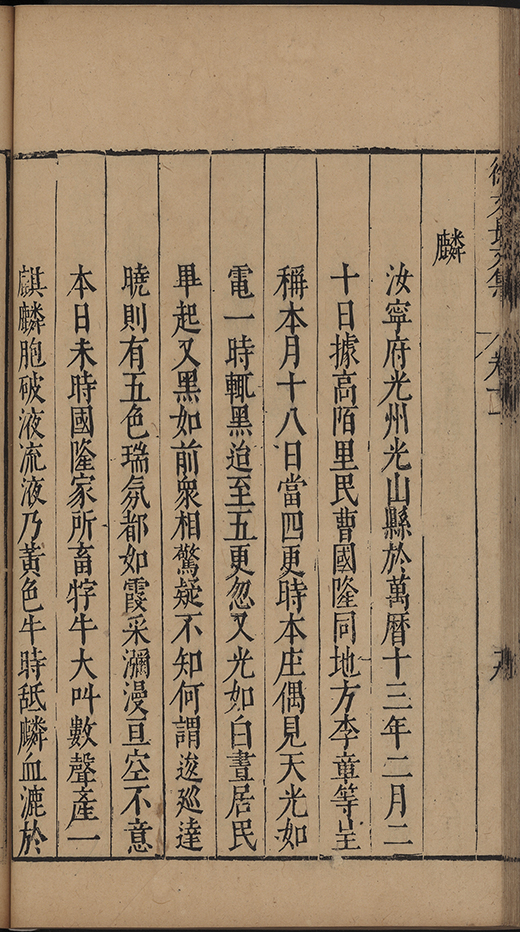 徐文長文集 卷十
麟
汝寧府光州光山縣於萬曆十三年二月二
十日據高陌里民曹國隆同地方李章等呈
稱本月十八日當四更時本庄偶見天光如
電一時輒黑迨至五更忽又光如白晝居民
畢起又黑如前衆相驚疑不知何謂逡廵達
曉則有五色瑞氛都如霞采瀰漫亘空不意
本日未時國隆家所畜牸牛大叫數聲產一
麒麟胞破液流液乃黃色牛時舐麟血漉於